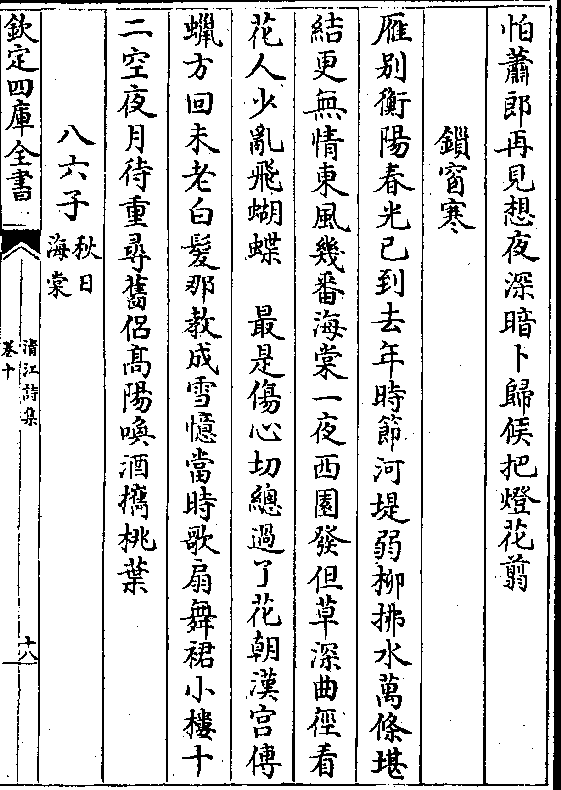 怕蕭郎再見想夜深暗卜歸候把燈花翦
鎖窗寒
雁别衡陽春光已到去年時節河堤弱柳拂水萬條堪
結更無情東風幾番海棠一夜西園發但草深曲徑看
花人少亂飛蝴蝶　最是傷心切總過了花朝漢宫傳
蠟方回未老白髮那教成雪憶當時歌扇舞裙小樓十
二空夜月待重尋舊侣髙陽喚酒擕桃葉
八六子秋日海棠
欽定四庫全書
清江詩集
卷十
十八